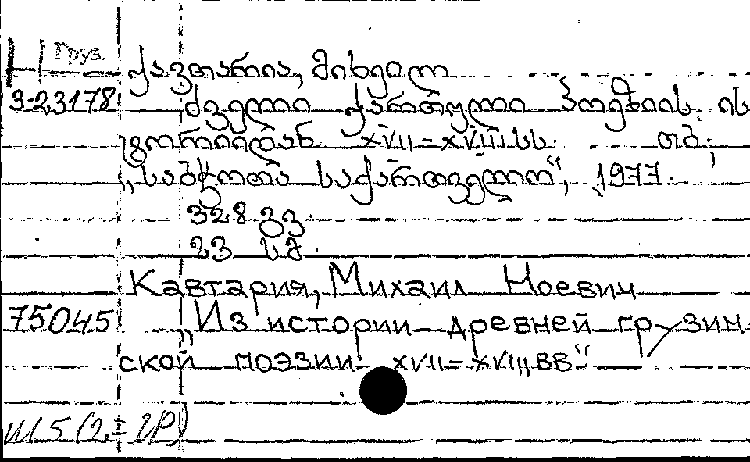 Груз.
ქავთარია, მიხეილ
3-23178 ძველი ქართული პოეზიის ის
ტორიიდან XVII-XVIII სს. თბ.,
„საბჭოთა საქართველო“, 1977.
328 გვ.
23 სმ.
Кавтария, Михаил Ноевич
75045 „Из истории древней грузин-
ской поэзии XVII-XVIII вв“
Ш5(2=ГР)